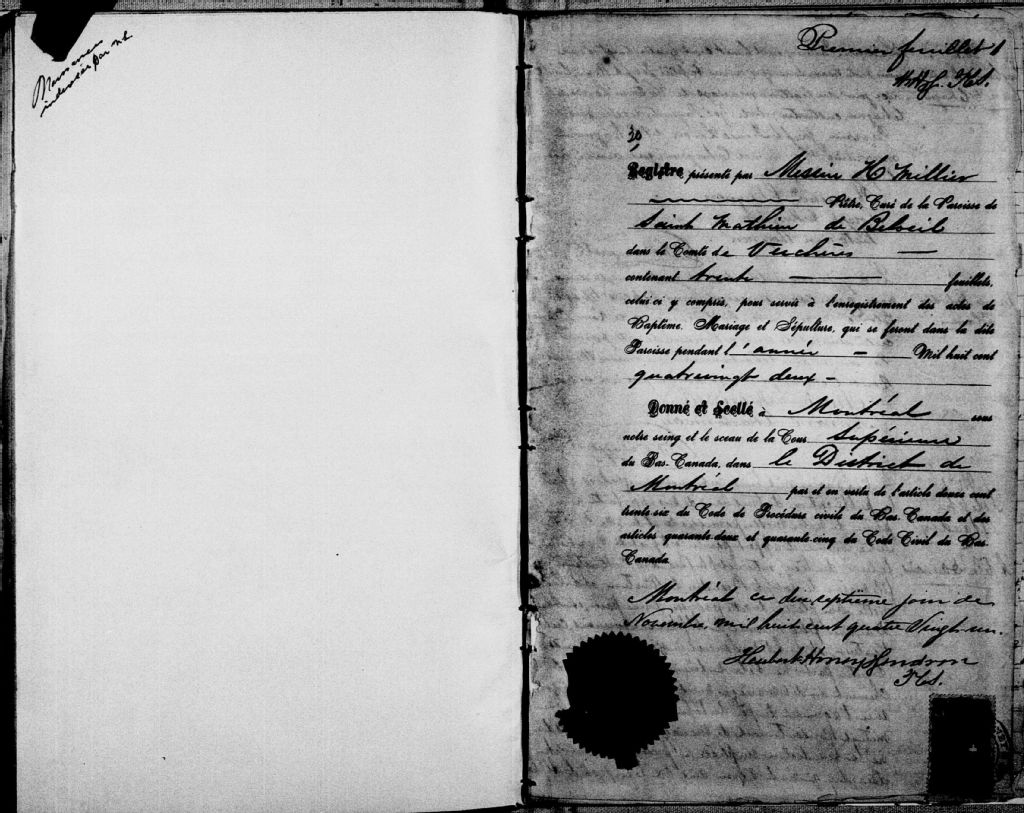 indexées par
Premier feuillet 1
HHG. P.H.S.
30
Registre présenté par Messire H Millier
Prêtre, Curé de la Paroisse de
Saint Mathieu de Beloeil
dans le Comté de Verchères —
contenant trente — feuillets,
celui-ci y compris, pour servir à l'enregistrement des actes de
Baptême, Mariage et Sépulture, qui se feront dans la dite
Paroisse pendant l'année — Mil huit cent
quatrevingt deux -
Donné et Scellé à Montréal sous
notre seing et le sceau de la Cour Supérieure
du Bas-Canada, dans le District de
Montréal par et en vertu de l'article douze cent
trente-six du Code de Procédure civile du Bas-Canada et des
articles quarante-deux et quarante-cinq du Code Civil du Bas-
Canada
Montréal ce dix septième jour de
Novembre, mil huit cent quatre Vingt-un.
Honey Gendron
P.H.S.